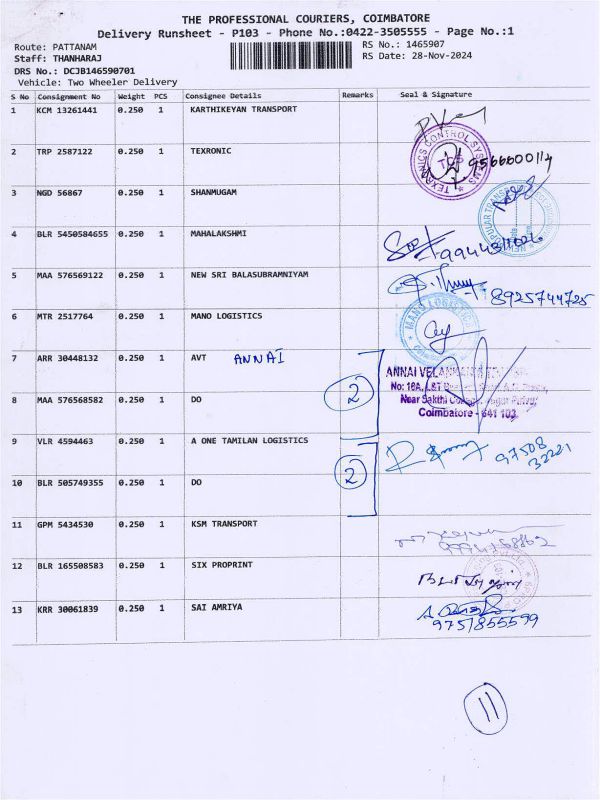 THE PROFESSIONAL COURIERS, COIMBATORE
Delivery Runsheet - P103 - Phone No.:0422-3505555 - Page No.:1
Route: PATTANAM
RS No.: 1465907
Staff: THANHARAJ
RS Date: 28-Nov-2024
DRS No.: DCJB146590701
Vehicle: Two Wheeler Delivery
S No Consignment No Weight PCS Consignee Details Remarks Seal & Signature
1 KCM 13261441 0.250 1 KARTHIKEYAN TRANSPORT
2 TRP 2587122 0.250 1 TEXRONIC
TEXRONICS CONTROL SYSTEMS
TCS
9566600114
3 NGD 56867 0.250 1 SHANMUGAM
4 BLR 5450584655 0.250 1 MAHALAKSHMI
5 MAA 576569122 0.250 1 NEW SRI BALASUBRAMNIYAM
8925744725
6 MTR 2517764 0.250 1 MANO LOGISTICS
MANO LOGISTICS
7 ARR 30448132 0.250 1 AVT ANNAI
ANNAI
No: 18A,
Near Sakthi
Coimbatore - 641 103.
8 MAA 576568582 0.250 1 DO 2
9 VLR 4594463 0.250 1 A ONE TAMILAN LOGISTICS
97508
32221
10 BLR 505749355 0.250 1 DO 2
11 GPM 5434530 0.250 1 KSM TRANSPORT
12 BLR 165508583 0.250 1 SIX PROPRINT
13 KRR 30061839 0.250 1 SAI AMRIYA
9751855599
11